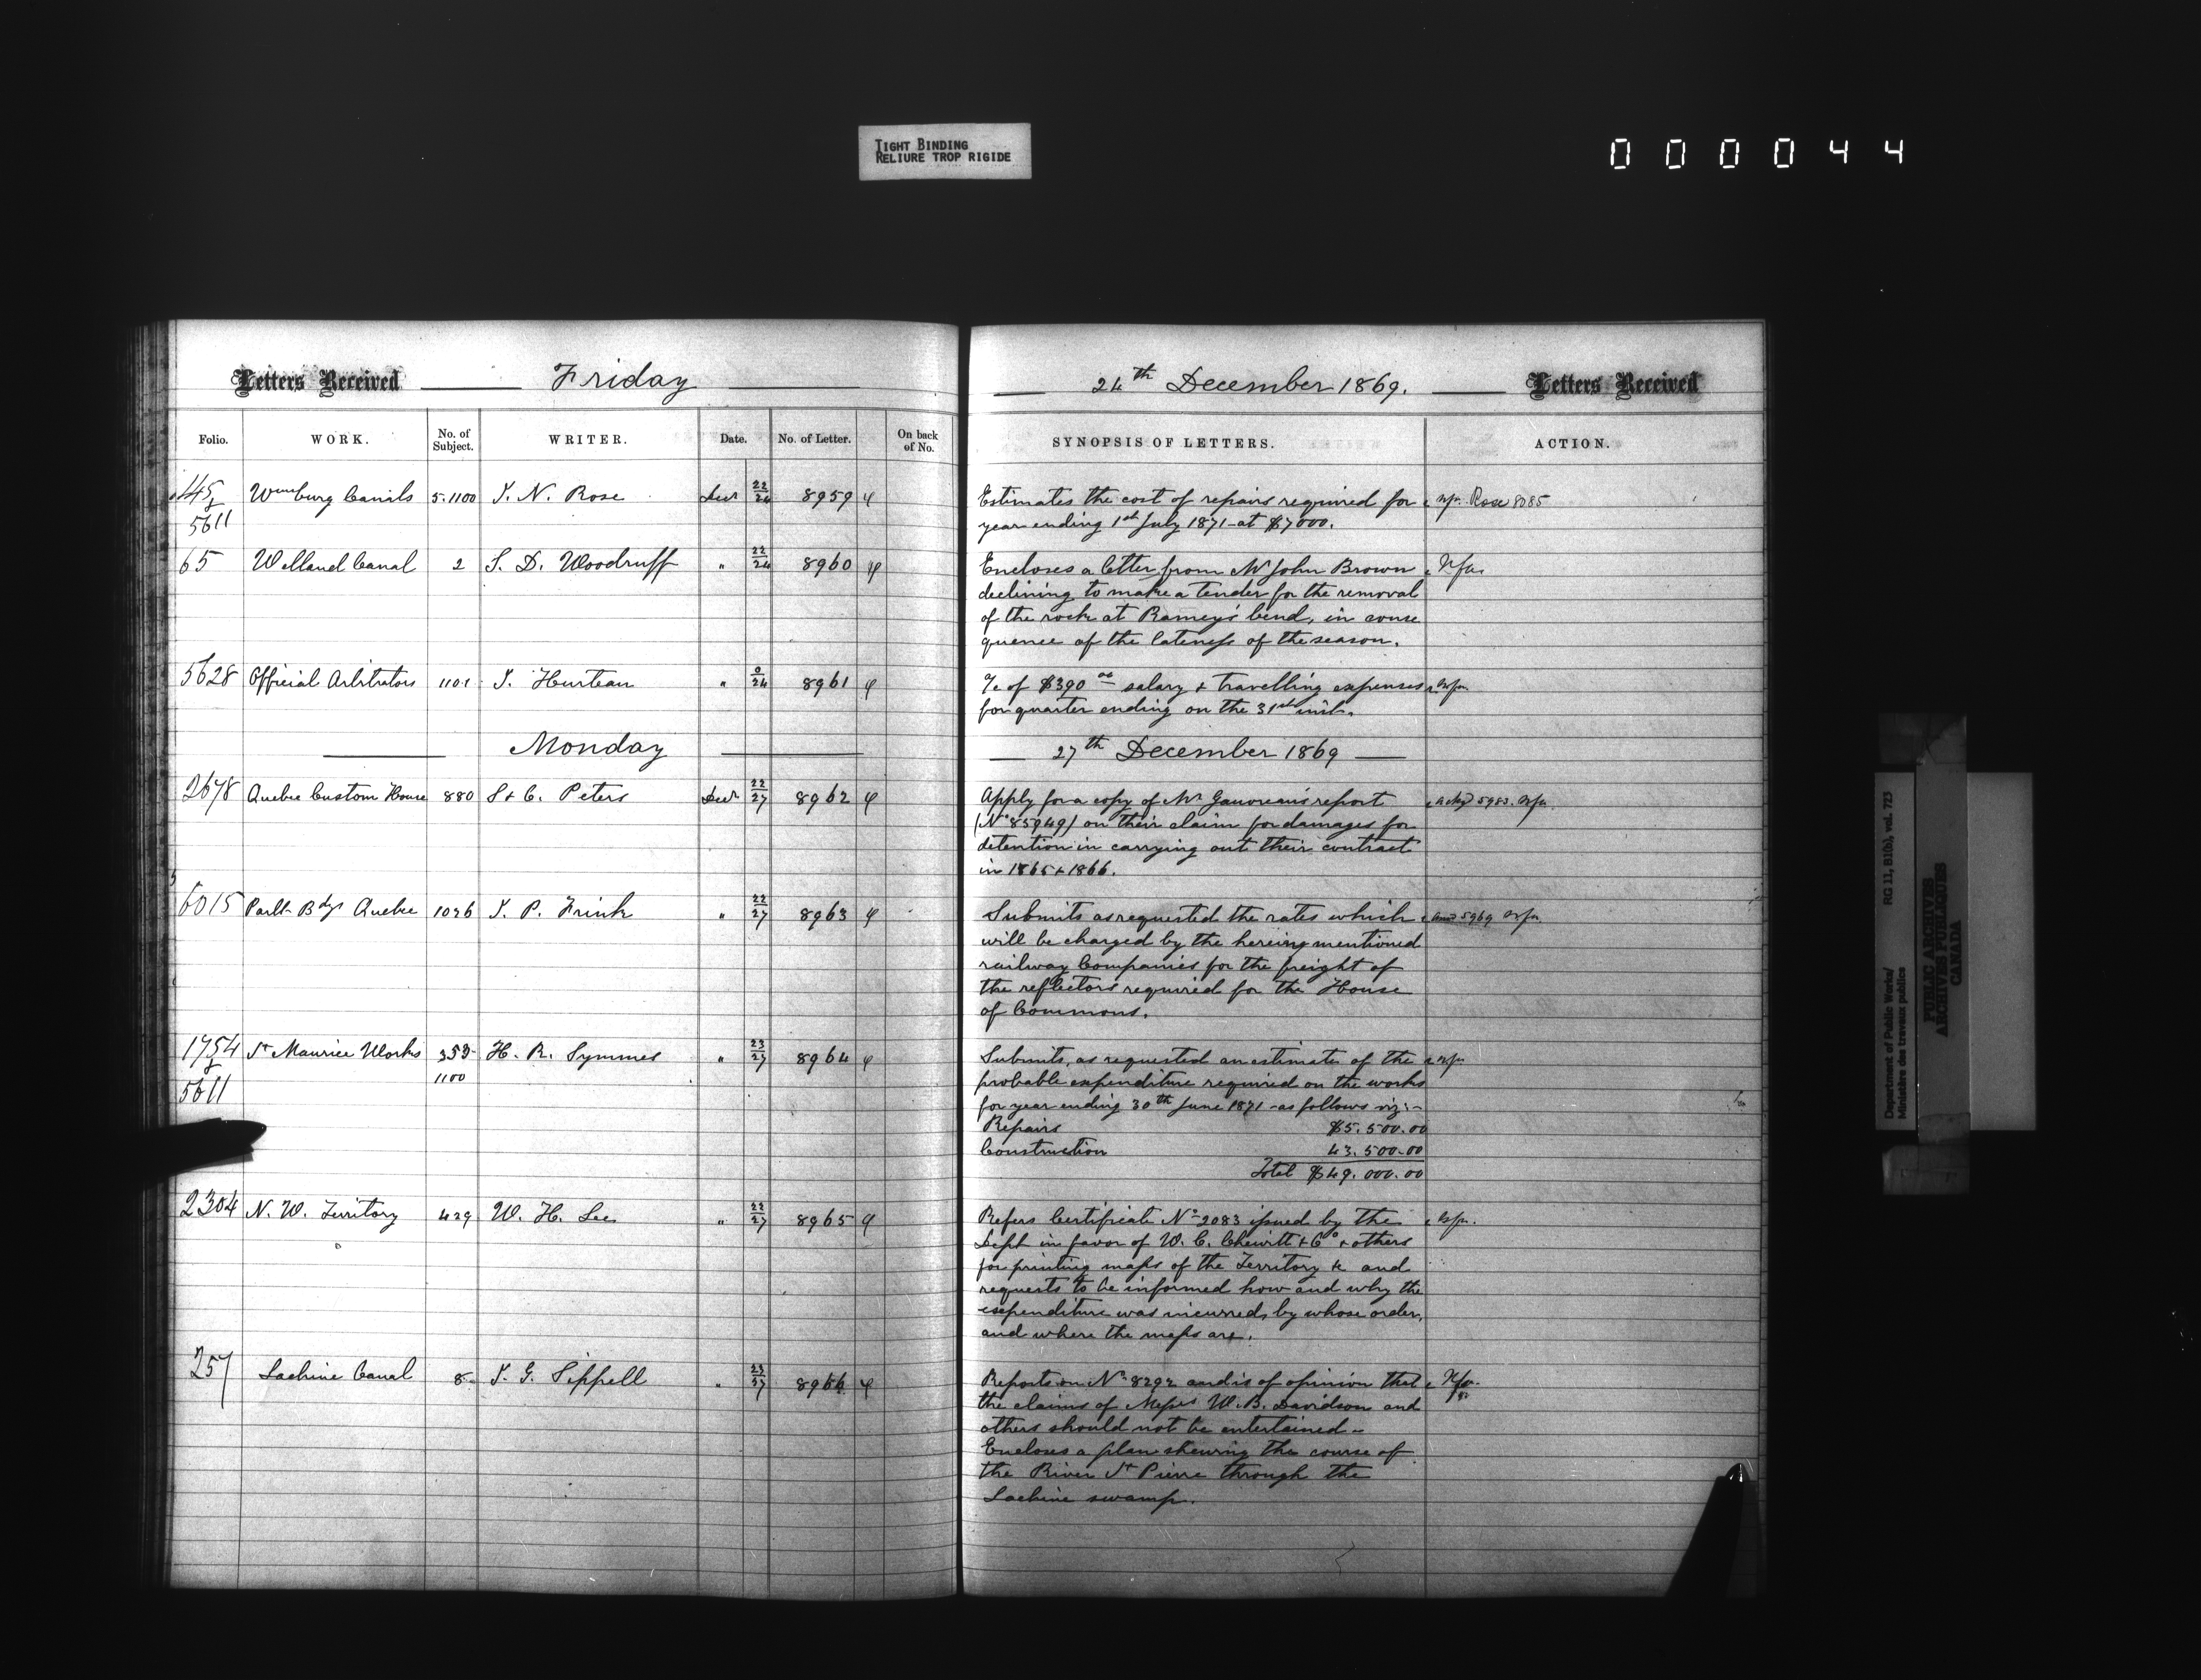 TIGHT BINDING
RELIURE TROP RIGIDE
000044
Letters Received Friday
24th December 1869. Letters Received
Folio. WORK. No. of Subject. WRITER. Date. No. of Letter. On back of No.
SYNOPSIS OF LETTERS. ACTION.
145 & 5611 Wmsburg Canals 5.1100 J. N. Rose Decr 22/24 8959
Estimates the cost of repairs required for Rose 8085
year ending 1st July 1871 at $7000.
65 Welland Canal 2 S. D. Woodruff " 22/24 8960
Encloses a letter from Mr John Brown Nfa.
declining to make a tender for the removal
of the rock at Ramey's bend, in conse
quence of the lateness of the season.
5628 Official Arbitrators 1101 J. Hurteau " 0/24 8961
a/c of $390 salary & travelling expenses Nfa
for quarter ending on the 31st inst.
Monday
27th December 1869
2678 Quebec Custom House 880 S & C. Peters Decr 22/27 8962
Apply for a copy of Mr Gauvreau's report Ackgd 5983. Nfa
(No 85949) on their claim for damages for
detention in carrying out their contract
in 1865 & 1866.
6015 Parlt Bdgs Quebec 1026 J. P. Frink " 22/27 8963
Submits as requested the rates which 5969 Nfa
will be charged by the herein mentioned
railway Companies for the freight of
the reflectors required for the House
of Commons.
1754 & 5611 St Maurice Works 353 1100 H. R. Symmes " 23/27 8964
Submits, as requested an estimate of the Nfa
probable expenditure required on the works
for year ending 30th June 1871 as follows viz:-
Repairs $5.500.00
Construction 43.500.00
Total $49.000.00
2304 N. W. Territory 429 W. H. Lee " 22/27 8965
Refers Certificate No 2083 issued by the Nfa.
Dept in favor of W. C. Chewitt & Co & others
for printing maps of the Territory &c and
requests to be informed how and why the
expenditure was incurred, by whose order,
and where the maps are.
257 Lachine Canal 8 J. G. Sippell " 23/27 8966
Reports on No 8292 and is of opinion that Nfa.
the claims of Messrs W. B. Davidson and
others should not be entertained -
Encloses a plan shewing the course of
the River St Pierre through the
Lachine swamp.
Department of Public Works/ RG 11, B1(b), vol. 723
Ministère des travaux publics
PUBLIC ARCHIVES
ARCHIVES PUBLIQUES
CANADA